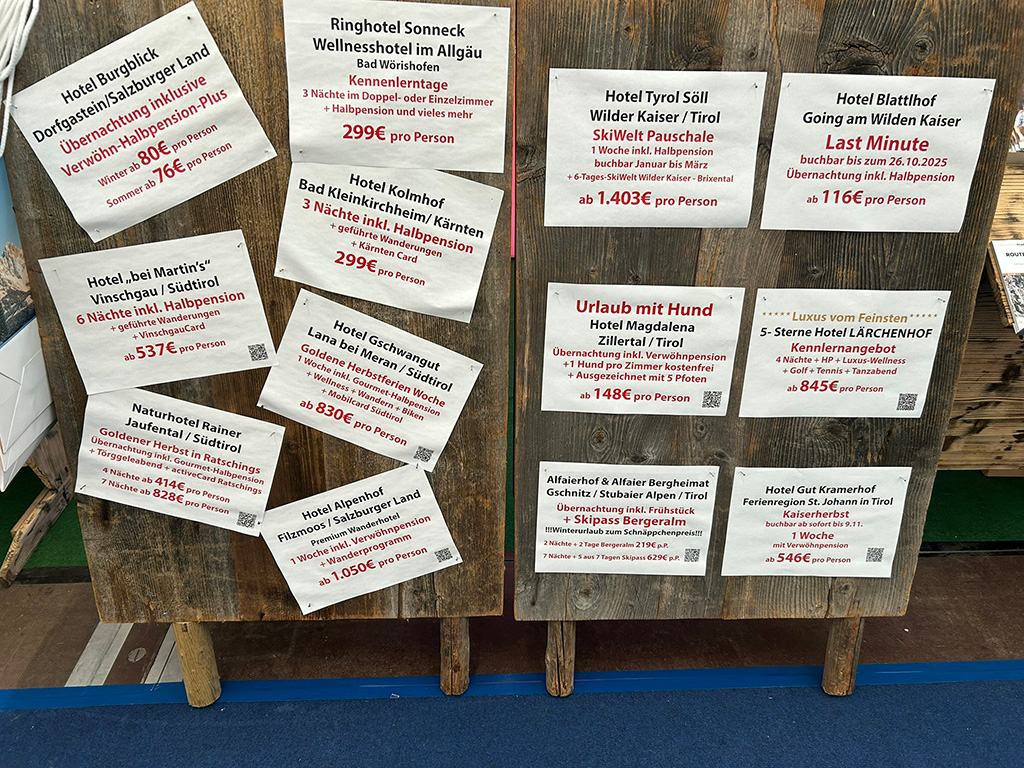 Hotel Burgblick
Dorfgastein/Salzburger Land
Übernachtung inklusive
Verwöhn-Halbpension-Plus
Winter ab 80€ pro Person
Sommer ab 76€ pro Person
Ringhotel Sonneck
Wellnesshotel im Allgäu
Bad Wörishofen
Kennenlerntage
3 Nächte im Doppel- oder Einzelzimmer
+ Halbpension und vieles mehr
299€ pro Person
Hotel Kolmhof
Bad Kleinkirchheim/ Kärnten
3 Nächte inkl. Halbpension
+ geführte Wanderungen
+ Kärnten Card
299€ pro Person
Hotel „bei Martin's“
Vinschgau / Südtirol
6 Nächte inkl. Halbpension
+ geführte Wanderungen
+ VinschgauCard
ab 537€ pro Person
Hotel Gschwangut
Lana bei Meran / Südtirol
Goldene Herbstferien Woche
1 Woche inkl. Gourmet-Halbpension
+ Wellness + Wandern + Biken
+ Mobilcard Südtirol
ab 830€ pro Person
Naturhotel Rainer
Jaufental / Südtirol
Goldener Herbst in Ratschings
Übernachtung inkl. Gourmet-Halbpension
+ Törggeleabend + activeCard Ratschings
4 Nächte ab 414€ pro Person
7 Nächte ab 828€ pro Person
Hotel Alpenhof
Filzmoos / Salzburger Land
Premium Wanderhotel
1 Woche inkl. Verwöhnpension
+ Wanderprogramm
ab 1.050€ pro Person
Hotel Tyrol Söll
Wilder Kaiser / Tirol
SkiWelt Pauschale
1 Woche inkl. Halbpension
buchbar Januar bis März
+ 6-Tages-SkiWelt Wilder Kaiser - Brixental
ab 1.403€ pro Person
Hotel Blattlhof
Going am Wilden Kaiser
Last Minute
buchbar bis zum 26.10.2025
Übernachtung inkl. Halbpension
ab 116€ pro Person
Urlaub mit Hund
Hotel Magdalena
Zillertal / Tirol
Übernachtung inkl. Verwöhnpension
+1 Hund pro Zimmer kostenfrei
+ Ausgezeichnet mit 5 Pfoten
ab 148€ pro Person
***** Luxus vom Feinsten *****
5- Sterne Hotel LÄRCHENHOF
Kennlernangebot
4 Nächte + HP + Luxus-Wellness
+ Golf + Tennis + Tanzabend
ab 845€ pro Person
Alfaierhof & Alfaier Bergheimat
Gschnitz / Stubaier Alpen / Tirol
Übernachtung inkl. Frühstück
+ Skipass Bergeralm
!!!Winterurlaub zum Schnäppchenpreis!!!
2 Nächte + 2 Tage Bergeralm 219€ p.P.
7 Nächte + 5 aus 7 Tagen Skipass 629€ p.P.
Hotel Gut Kramerhof
Ferienregion St. Johann in Tirol
Kaiserherbst
buchbar ab sofort bis 9.11.
1 Woche
mit Verwöhnpension
ab 546€ pro Person